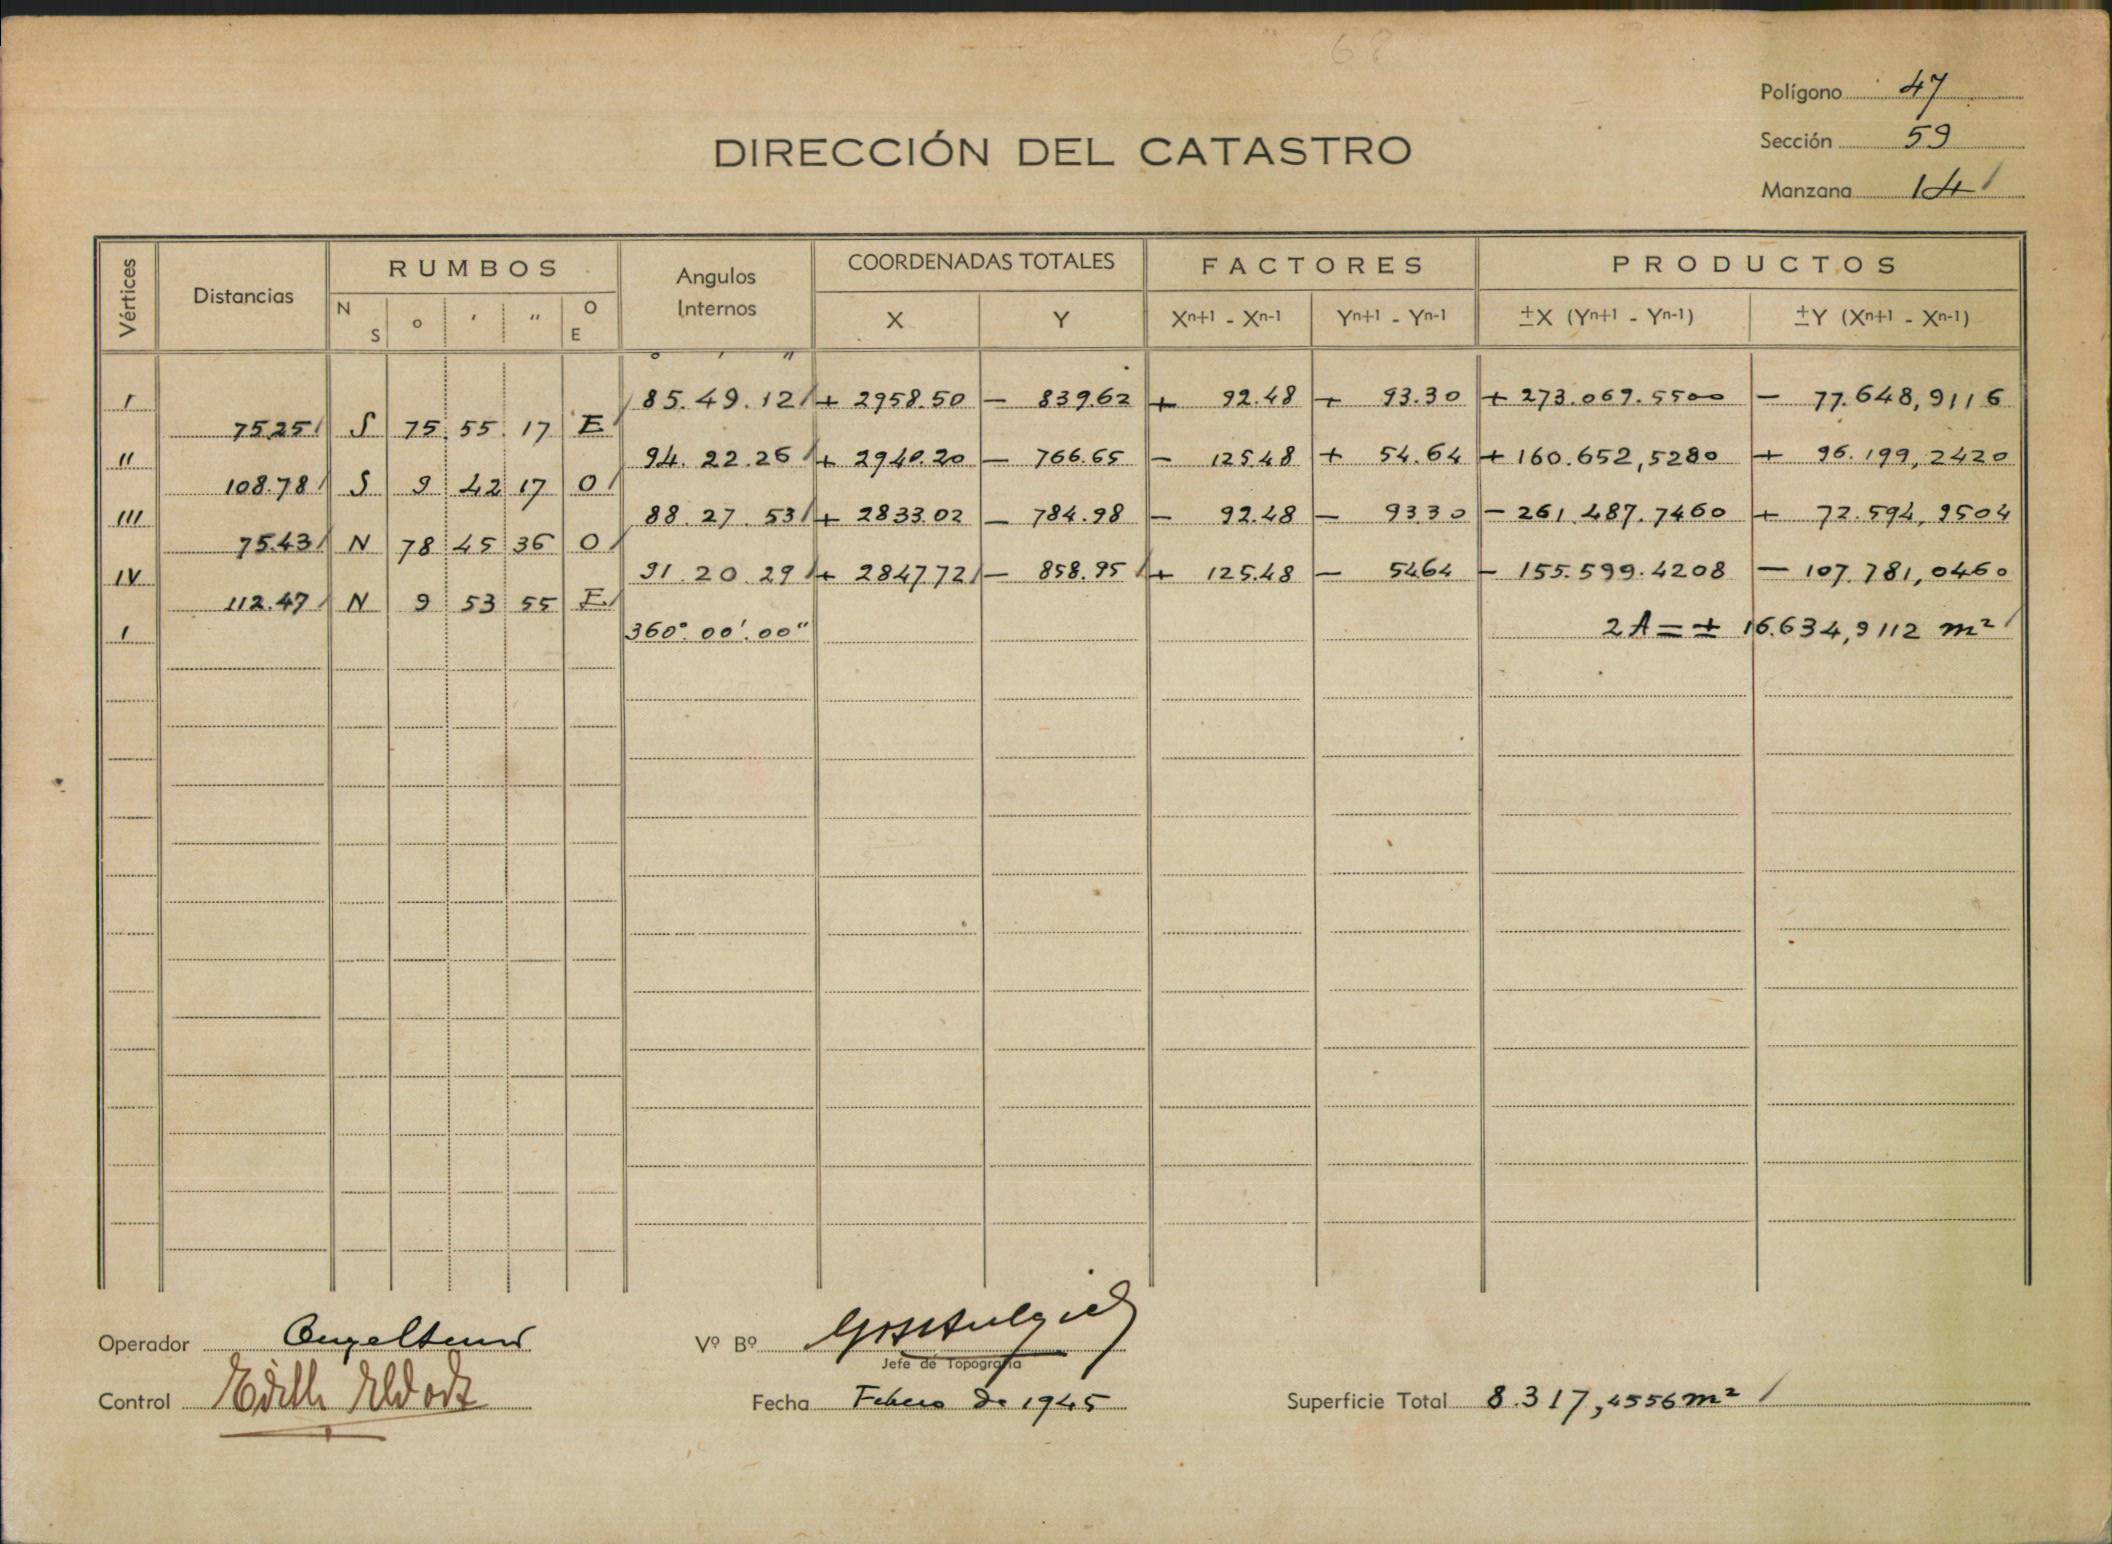 Polígono 47
Sección 59
Manzana 14
DIRECCIÓN DEL CATASTRO
Vértices Distancias RUMBOS Angulos Internos COORDENADAS TOTALES FACTORES PRODUCTOS
N S o ' " O E X Y Xn+1 - Xn-1 Yn+1 - Yn-1 ±X (Yn+1 - Yn-1) ±Y (Xn+1 - Xn-1)
o ' "
I 85.49.12 + 2958.50 - 839.62 + 92.48 + 93.30 + 273.069.5500 - 77.648,9116
75.25 S 75 55 17 E
II 94.22.26 + 2940.20 - 766.65 - 125.48 + 54.64 + 160.652,5280 + 96.199,2420
108.78 S 9 42 17 O
III 88.27.53 + 2833.02 - 784.98 - 92.48 - 93.30 - 261.487.7460 + 72.594,9504
75.43 N 78 45 36 O
IV 91.20.29 + 2847.72 - 858.95 + 125.48 - 54.64 - 155.599.4208 - 107.781,0460
112.47 N 9 53 55 E
I 360° 00' 00" 2A = + 16.634,9112 m²
Operador
Vº Bº
Jefe de Topografía
Control Edith
Fecha Febrero de 1945
Superficie Total 8.317,4556 m²